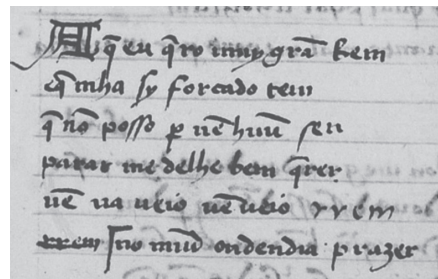 A q̃ eu q̃ro muy grã bem
e q̃ mha sy forcado tem
q̃ nõ posso per nẽhuũ sen
parar me delhe bem q̃rer
nẽ na ueio nẽ ueio rrem
rrem no mũd ondendia prazer